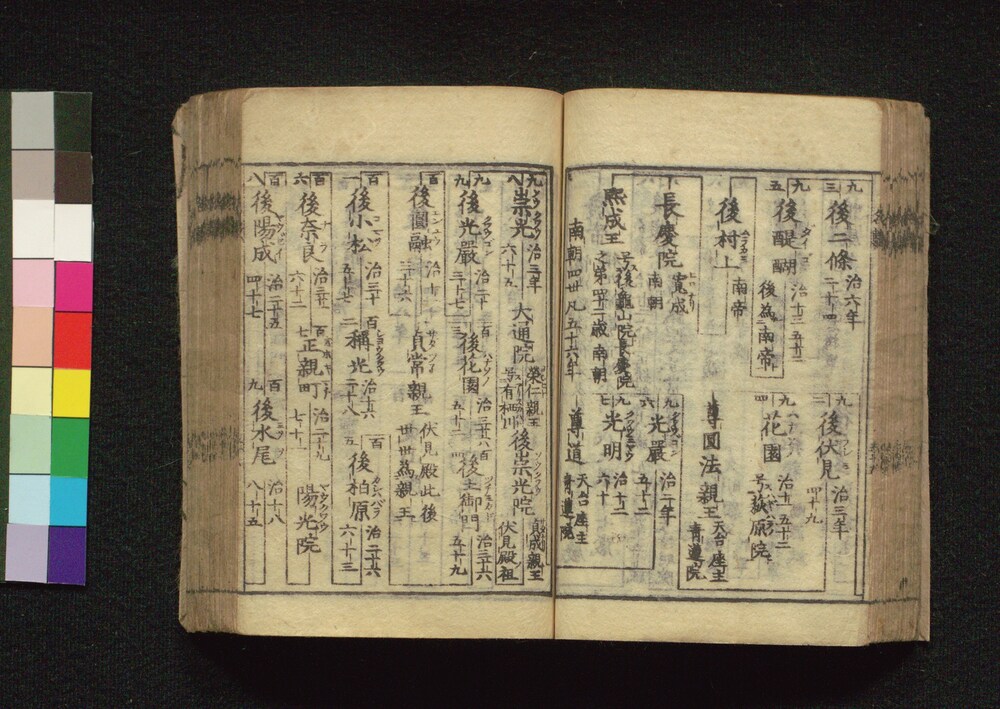 九十三 後二條 治六年 二十四
九十三 後伏見 治三年 四十九
九十五 後醍醐 ダイゴ 治十三 五十二 後為南帝
九十四 花園 治十一 五十二 号荻原院
後村上 ムラカミ 南帝
尊圓法親王 天台座主 青蓮院
長慶院 寛成 南朝
九十六 光嚴 治二年 五十二
熈成王 号後龜山院長慶院之弟 四十二歳 南朝
九十七 光明 治十二 六十
南朝四世凡五十六年
尊道 天台座主 青蓮院
九十八 崇光 治三年 六十五 大通院 榮仁親王 号有栖川 後崇光院 貞成親王 伏見殿祖
九十九 後光嚴 治二十 三十七 百三 後花園 ハナゾノ 治三十六 五十二 百四 後土御門 治三十六 五十九
百 後圓融 エンユウ 治十二 三十六 貞常親王 伏見殿此後世世為親王
百一 後小松 コマツ 治三十 五十七 百二 稱光 シヨウクワウ 治十六 二十八 百五 後柏原 カシハバラ 治二十六 六十三
百六 後奈良 ナラ 治三十一 六十二 百七 正親町 治二十九 七十一 陽光院 ヤウクワウ
百八 後陽成 ヤウゼイ 治二十五 四十七 百九 後水尾 治十八 八十五